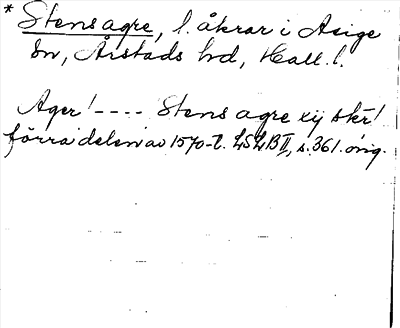 * Stens agre, l. åkrar i Asige
sn, Årstads hd, Hall. l.
Ager! ---- Stens agre xij skr!
förra delen av 1570-t. LSLB II, s. 361. orig.